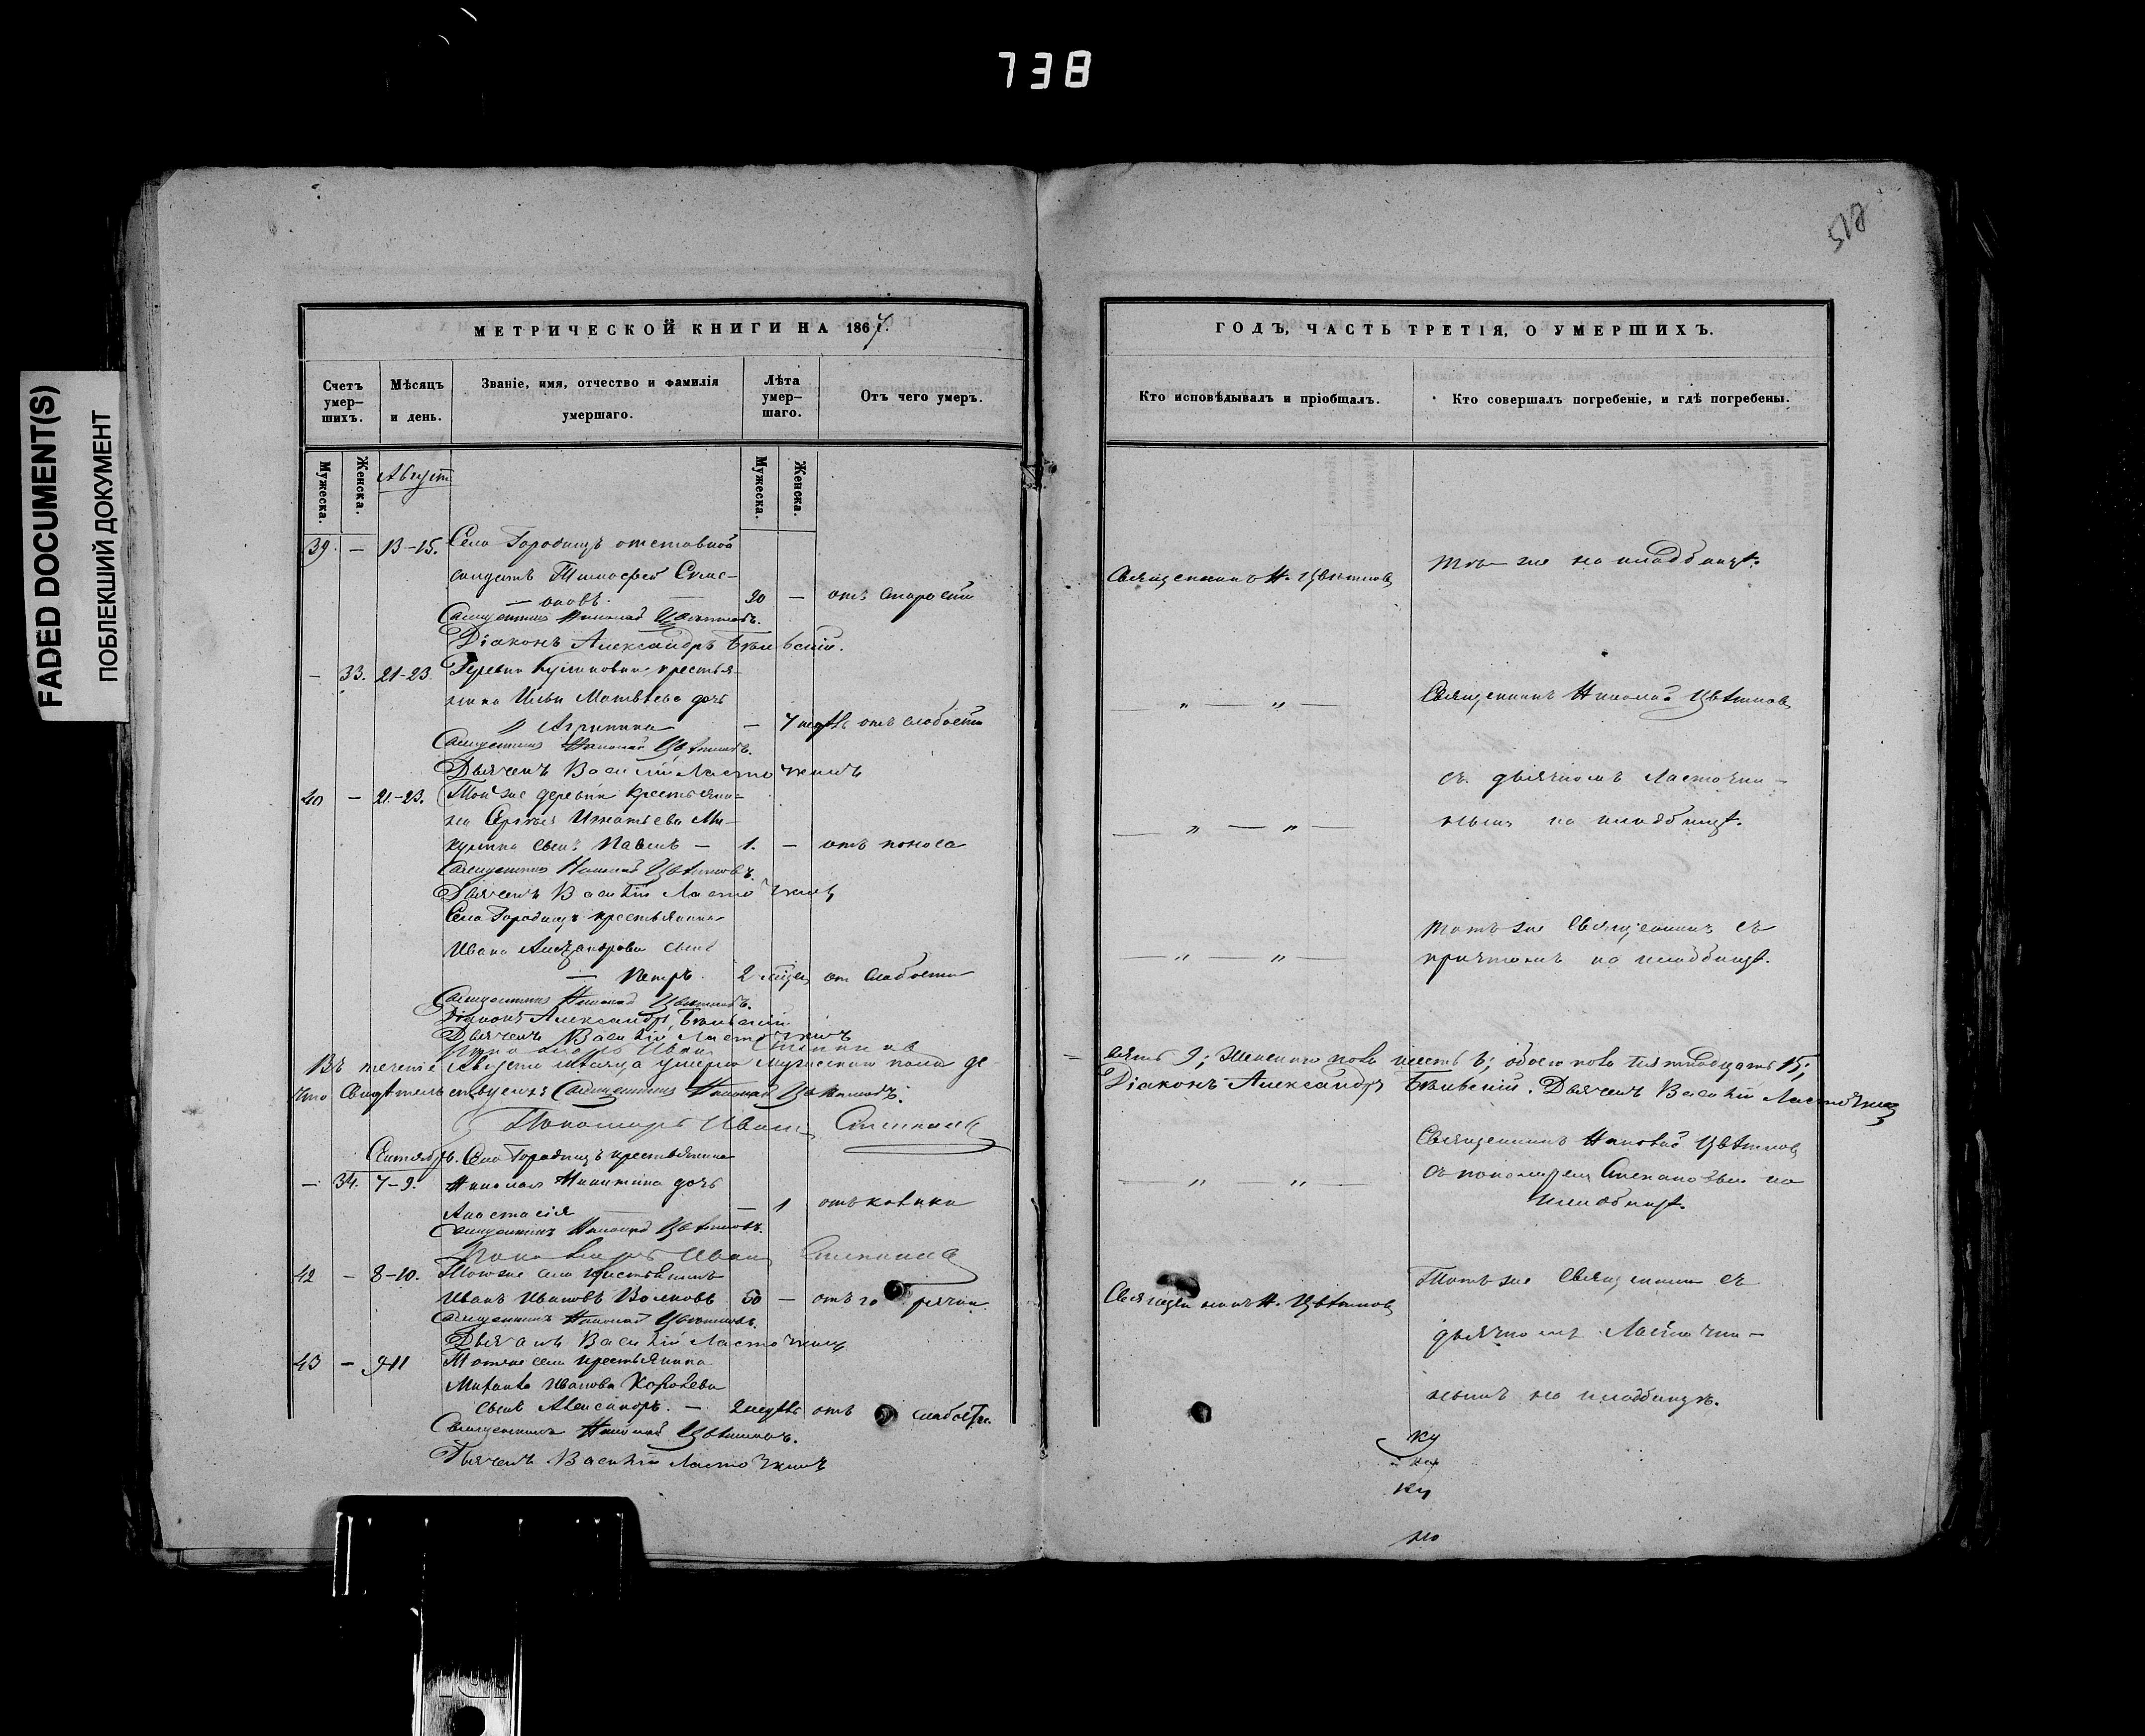 738
FADED DOCUMENT(S)
ПОБЛЕКШИЙ ДОКУМЕНТ
МЕТРИЧЕСКОЙ КНИГИ НА 1867.
Счетъ умер-
шихъ.
Мѣсяцъ
и день.
Званіе, имя, отчество и фамилія
умершаго.
Лѣта
умер-
шаго.
Отъ чего умеръ.
Мужеска.
Женска.
Августъ
Мужеска.
Женска.
39. — 13-15. Села Городищъ отставной
солдатъ Тимофей
— 90 — отъ старости
Священникъ Николай Цвѣтковъ.
Діаконъ Александръ
— 33. 21-23. Деревни крестья-
нина Ильи Матвѣева дочь
Агрипина — 7 недѣль отъ слабости
Священникъ Николай Цвѣтковъ.
Дьячекъ Василій Ласточкинъ
40 — 21-23. Той же деревни крестьяни-
на Сергѣя Игнатьева Ми-
сынъ Павелъ — 1. — отъ поноса
Священникъ Николай Цвѣтковъ.
Дьячекъ Василій Ласточкинъ
Села Городищъ крестьянина
Ивана Александрова сынъ
— Петръ. 2 отъ слабости
Священникъ Николай Цвѣтковъ.
Діаконъ Александръ
Дьячекъ Василій Ласточкинъ
Пономарь Иванъ
Въ теченіе Августа мѣсяца умерло мужескаго пола де-
что свидѣтельствуемъ: Священникъ Николай Цвѣтковъ.
Пономарь Иванъ
Сентябрь. Села Городищъ крестьянина
— 34. 7-9. Николая Никитина дочь
Анастасія — 1 отъ
Священникъ Николай Цвѣтковъ.
Пономарь Иванъ
42 — 8-10. Тогоже села крестьянинъ
Иванъ Ивановъ Волковъ 50 — отъ горячки
Священникъ Николай Цвѣтковъ.
Дьячекъ Василій Ласточкинъ
43 — 9-11 Тогоже села крестьянина
Ивanова Королева
сынъ Александръ. — 2 недѣль отъ слабости.
Священникъ Николай Цвѣтковъ.
Дьячекъ Василій Ласточкинъ
ГОДЪ, ЧАСТЬ ТРЕТІЯ, О УМЕРШИХЪ.
Кто исповѣдывалъ и пріобщалъ.
Кто совершалъ погребеніе, и гдѣ погребены.
Священникъ Н. Цвѣтковъ
же на кладбищѣ.
— „ — „ — Священникъ Николай Цвѣтковъ
съ дьячкомъ Ласточки-
— „ — „ — нымъ на кладбищѣ.
Тотъ же Священникъ съ
— „ — „ — причтомъ на кладбищѣ.
вять 9; женскаго пола шесть 6; обоего пола пятнадцать 15;
Діаконъ Александръ Дьячекъ Василій Ласточкинъ
Священникъ Николай Цвѣтковъ
— „ — „ — съ пономаремъ Степановымъ на
кладбищѣ.
Тотъ же Священникъ съ
Священникъ Н. Цвѣтковъ
дьячкомъ Ласточки-
нымъ на кладбищѣ.
ку
ку
но